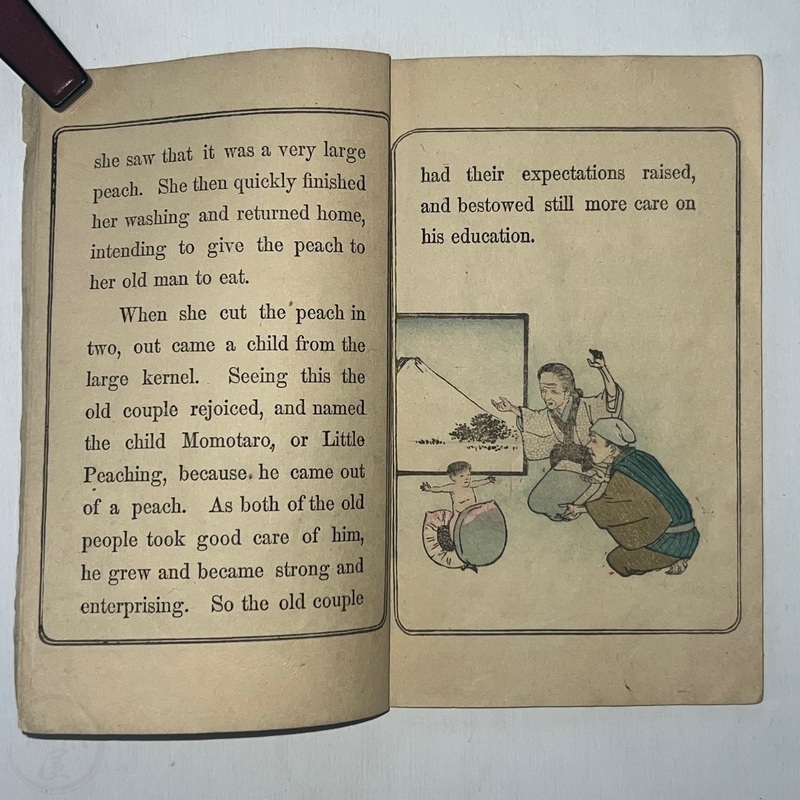 she saw that it was a very large
peach. She then quickly finished
her washing and returned home,
intending to give the peach to
her old man to eat.
When she cut the peach in
two, out came a child from the
large kernel. Seeing this the
old couple rejoiced, and named
the child Momotaro, or Little
Peaching, because he came out
of a peach. As both of the old
people took good care of him,
he grew and became strong and
enterprising. So the old couple
had their expectations raised,
and bestowed still more care on
his education.